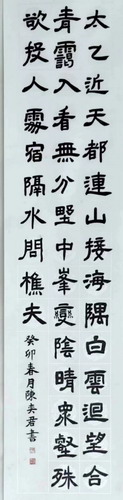 太乙近天都連山接海隅白雲迴望合
青靄入看無分墅中峯變陰晴眾壑殊
欲投人處宿隔水問樵夫
癸卯春月陳奕君書